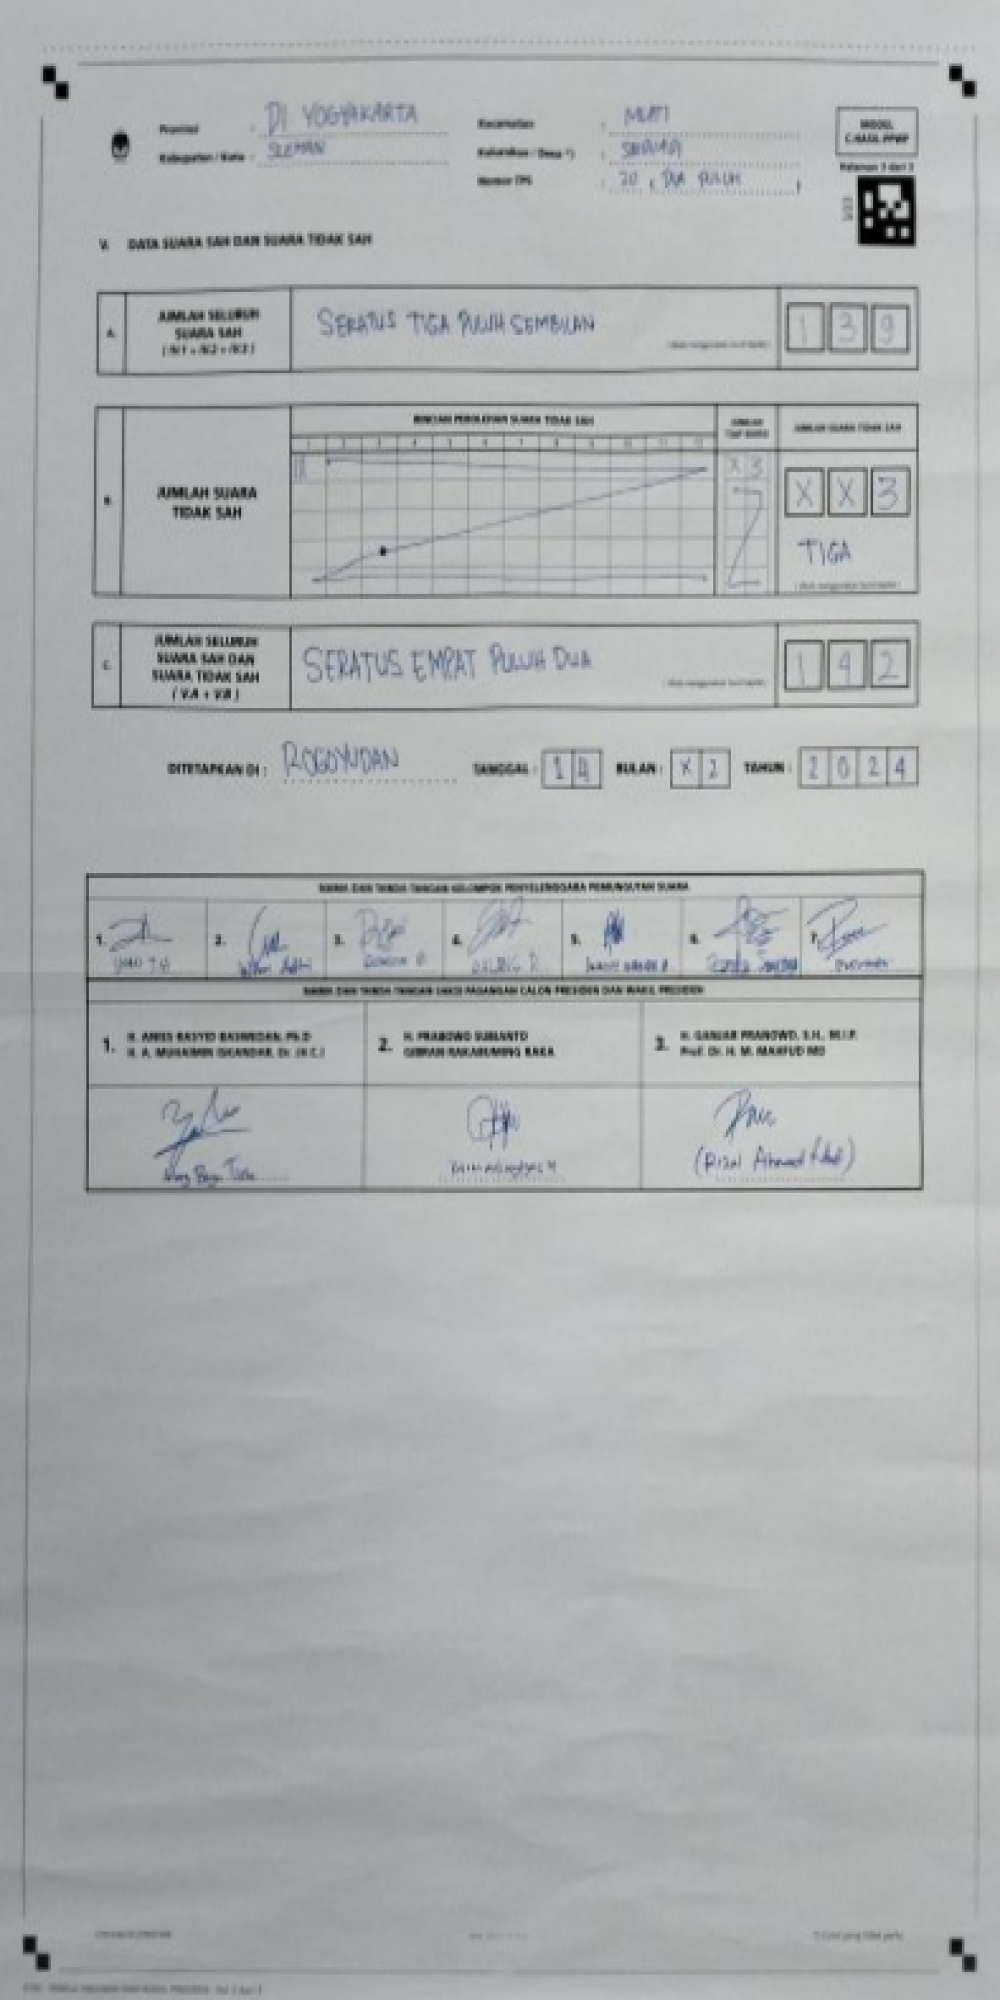 Provinsi : DI YOGYAKARTA
Kabupaten / Kota : SLEMAN
Kecamatan : MLATI
Kelurahan / Desa *) :
Nomor TPS : 20 , DUA PULUH
MODEL
C.HASIL-PPWP
Halaman 3 dari 3
V. DATA SUARA SAH DAN SUARA TIDAK SAH
A. JUMLAH SELURUH SUARA SAH (IV.1 + IV.2 + IV.3) SERATUS TIGA PULUH SEMBILAN 1 3 9
B. JUMLAH SUARA TIDAK SAH
RINCIAN PEROLEHAN SUARA TIDAK SAH
1 2 3 4 5 6 7 8 9 10 11 12
X 3
JUMLAH SUARA TIDAK SAH
X X 3
TIGA
C. JUMLAH SELURUH SUARA SAH DAN SUARA TIDAK SAH (V.A + V.B) SERATUS EMPAT PULUH DUA 1 4 2
DITETAPKAN DI : ROGOYUDAN TANGGAL : 1 4 BULAN : X 2 TAHUN : 2 0 2 4
NAMA DAN TANDA TANGAN KELOMPOK PENYELENGGARA PEMUNGUTAN SUARA
1. 2. 3. 4. 5. 6. 7.
NAMA DAN TANDA TANGAN SAKSI PASANGAN CALON PRESIDEN DAN WAKIL PRESIDEN
1. H. ANIES RASYID BASWEDAN, Ph.D
H. A. MUHAIMIN ISKANDAR, Dr. (H.C.)
2. H. PRABOWO SUBIANTO
GIBRAN RAKABUMING RAKA
3. H. GANJAR PRANOWO, S.H., M.I.P.
Prof. Dr. H. M. MAHFUD MD
(Rizal Ahmad
*) Coret yang tidak perlu